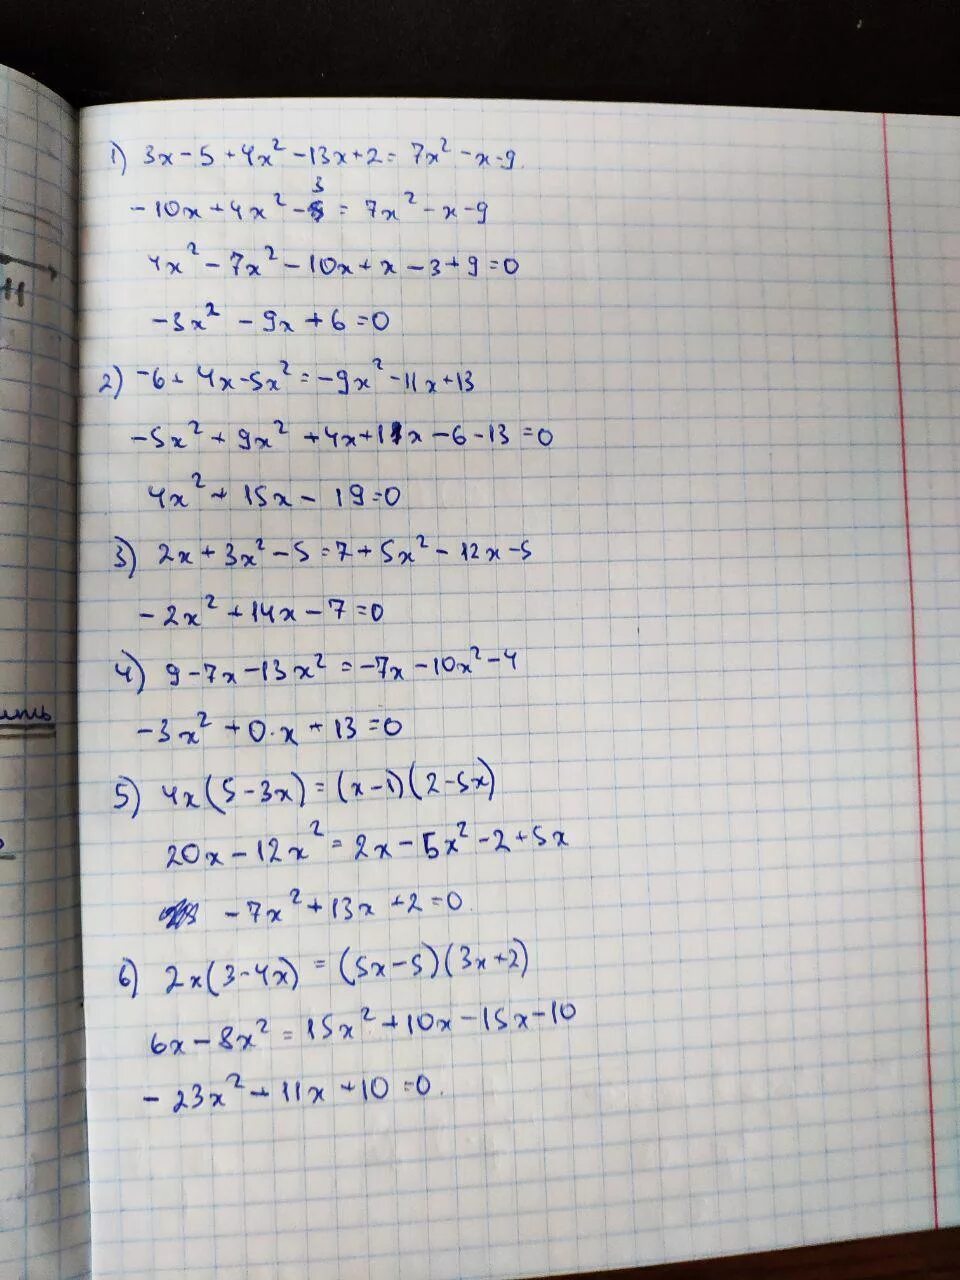 1) 3x - 5 + 4x² - 13x + 2 = 7x² - x - 9.
-10x + 4x² - 3 = 7x² - x - 9
4x² - 7x² - 10x + x - 3 + 9 = 0
-3x² - 9x + 6 = 0
2) -6 + 4x - 5x² = -9x² - 11x + 13
-5x² + 9x² + 4x + 11x - 6 - 13 = 0
4x² + 15x - 19 = 0
3) 2x + 3x² - 5 = 7 + 5x² - 12x - 5
-2x² + 14x - 7 = 0
4) 9 - 7x - 13x² = -7x - 10x² - 4
-3x² + 0·x + 13 = 0
5) 4x(5 - 3x) = (x - 1)(2 - 5x)
20x - 12x² = 2x - 5x² - 2 + 5x
-7x² + 13x + 2 = 0.
6) 2x(3 - 4x) = (5x - 5)(3x + 2)
6x - 8x² = 15x² + 10x - 15x - 10
-23x² + 11x + 10 = 0.